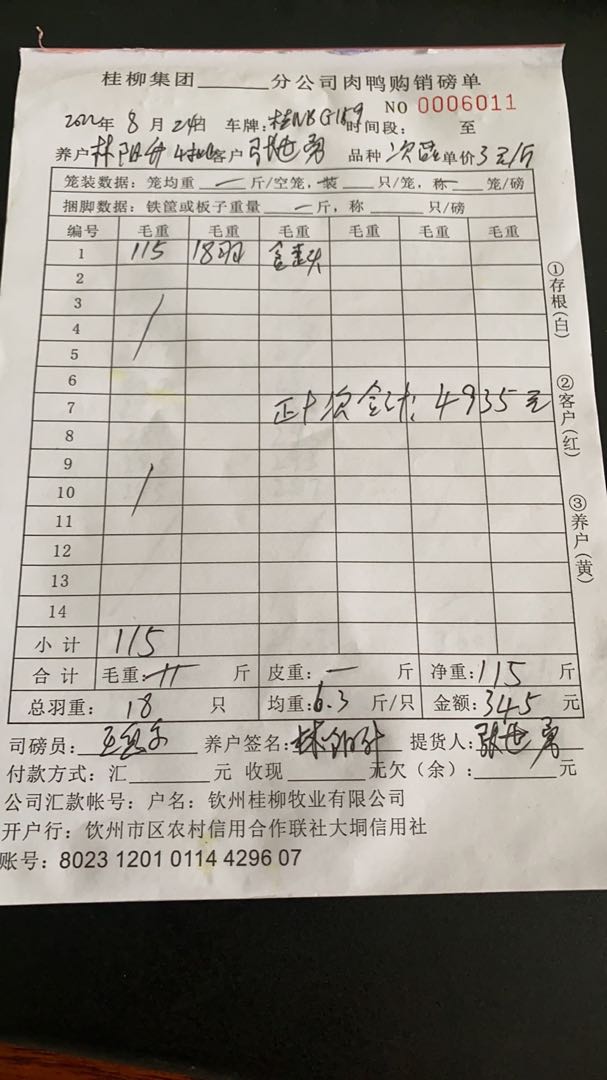 桂柳集团______分公司肉鸭购销磅单
NO 0006011
2022年 8 月 24日 车牌: 时间段: 至
养户 客户 张世勇 品种 次品 单价 3元/斤
笼装数据: 笼均重 一 斤/空笼, 装 只/笼, 称 笼/磅
捆脚数据: 铁筐或板子重量 一 斤, 称 只/磅
编号 毛重 毛重 毛重 毛重 毛重 毛重
1 115 18羽
2
3
4
5
6
7 正+次合计: 4935元
8
9
10
11
12
13
14
小计 115
合计 毛重: 斤 皮重: 一 斤 净重: 115 斤
总羽重: 18 只 均重: 6.3 斤/只 金额: 345 元
司磅员: 养户签名: 提货人: 张世勇
付款方式: 汇______元 收现______无欠(余):______元
公司汇款帐号: 户名: 钦州桂柳牧业有限公司
开户行: 钦州市区农村信用合作联社大垌信用社
账号: 8023 1201 0114 4296 07
①存根(白)
②客户(红)
③养户(黄)